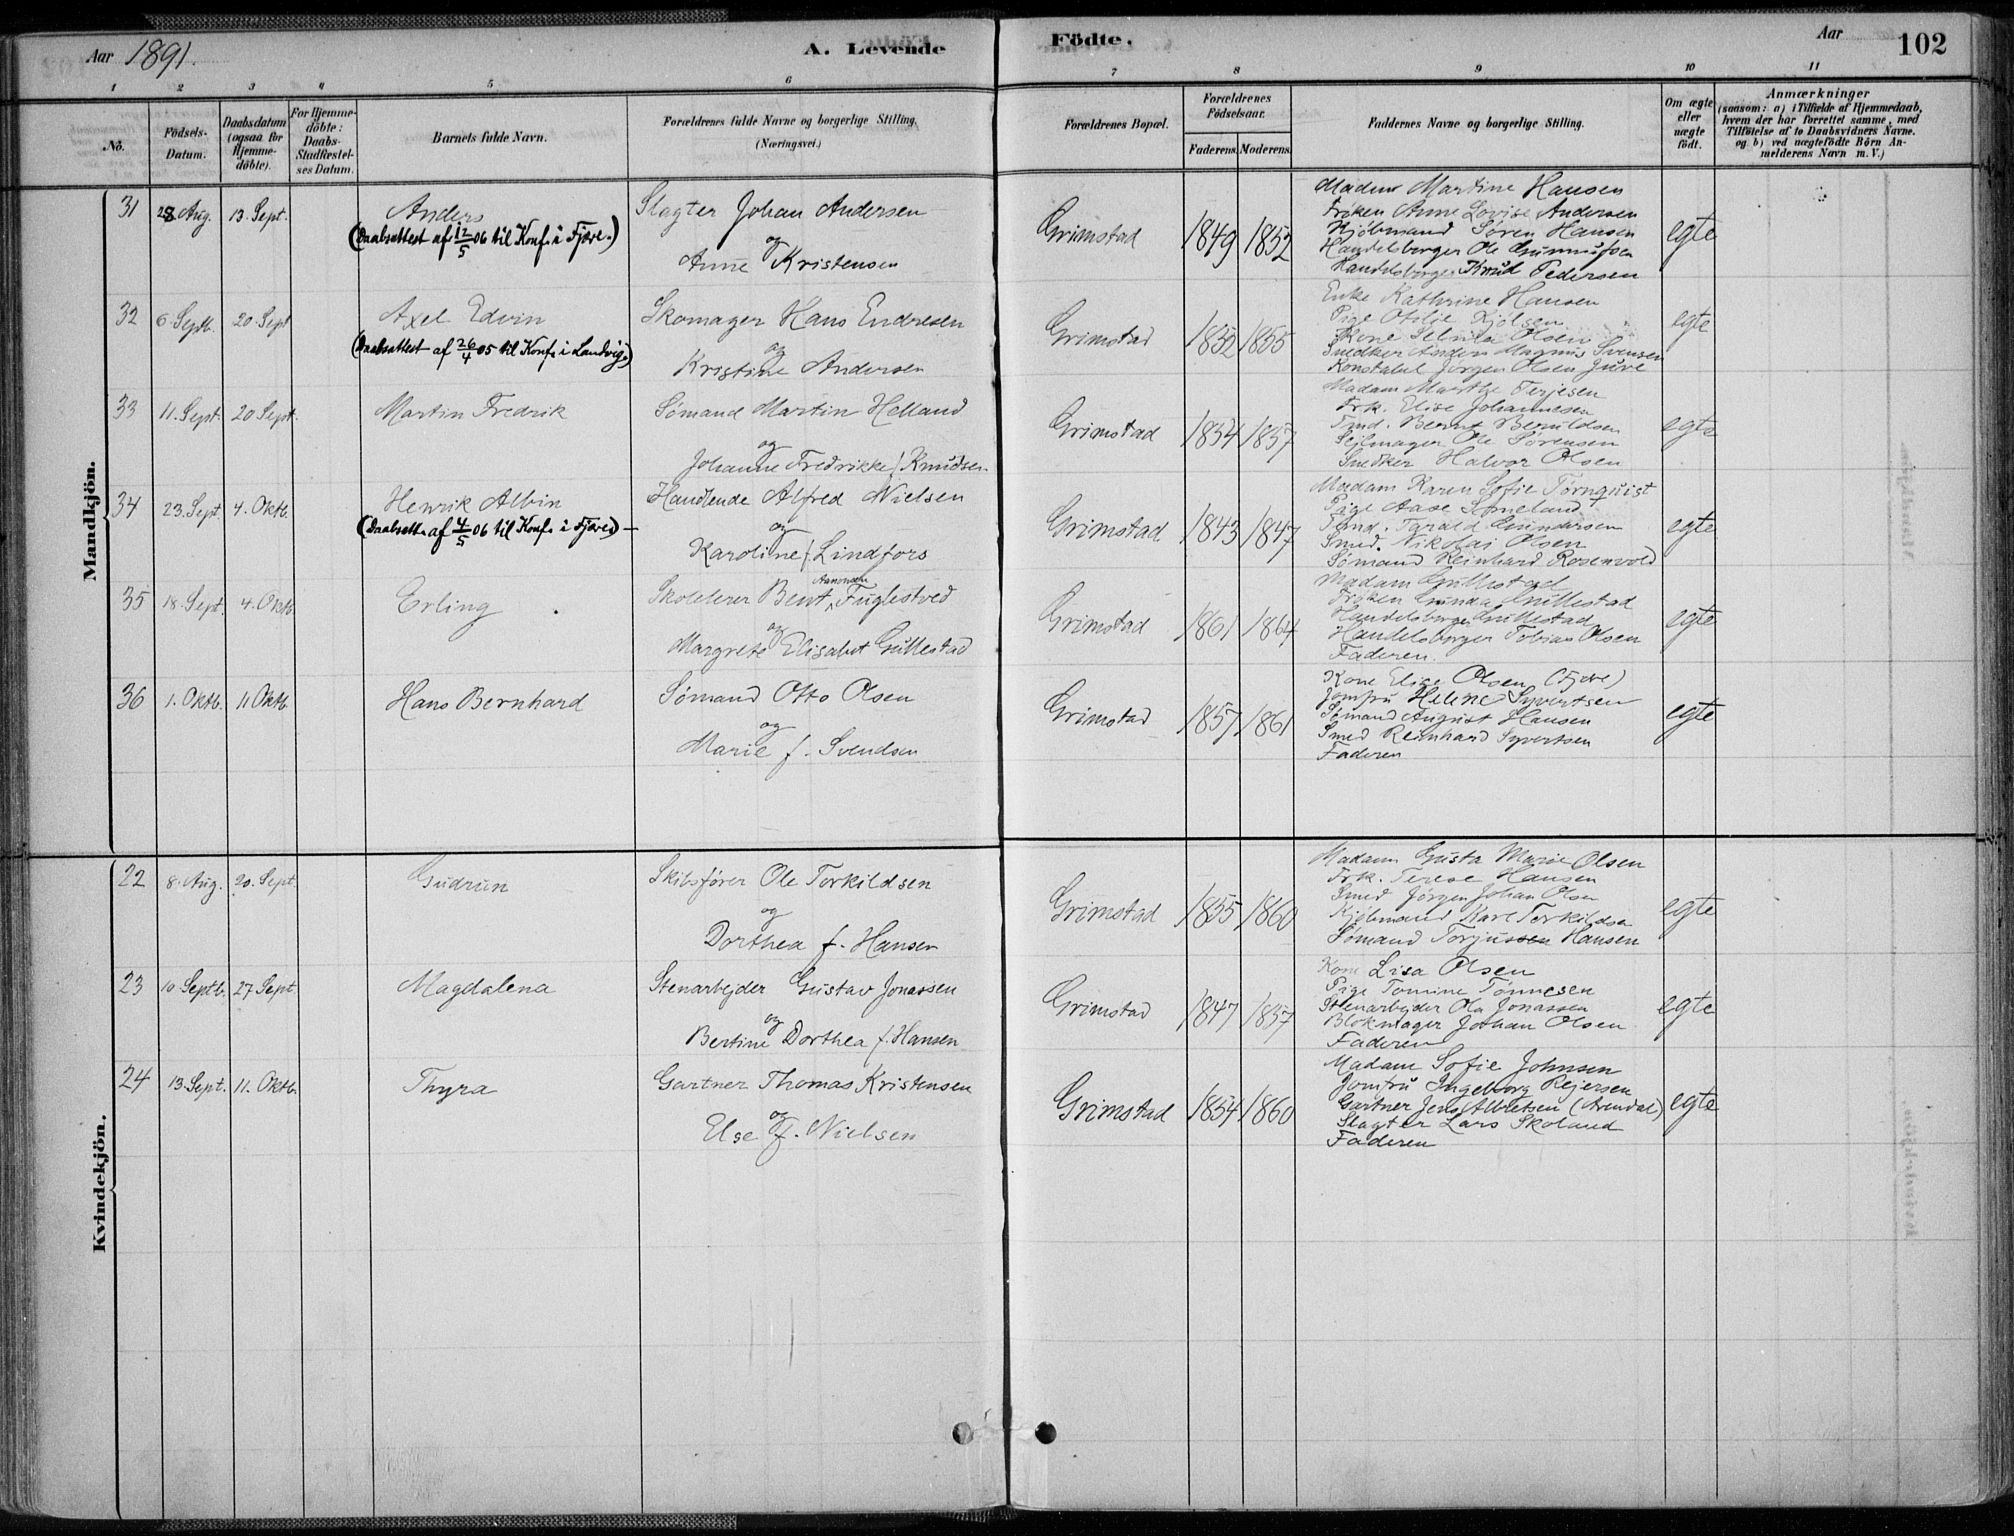 Aar 1891.
A. Levende
Födte.
Aar
102
1 2 3 4 5 6 7 8 9 10 11
No.
Födsels-Datum.
Daabsdatum (ogsaa for Hjemmedöbte).
For Hjemmedöbte: Daabs-Stadfæstelses Datum.
Barnets fulde Navn.
Forældrenes fulde Navne og borgerlige Stilling. (Næringsvei.)
Forældrenes Bopæl.
Forældrenes Födselsaar.
Faderens. Moderens.
Faddernes Navne og borgerlige Stilling.
Om ægte eller uægte födt.
Anmærkninger
(saasom: a) i Tilfælde af Hjemmedaab, hvem der har forrettet samme, med Tilföielse af to Daabsvidners Navne. og b) ved uægtefödte Börn Anmelderens Navn m. V.)
Mandkjön.
31 28 Aug. 13. Sept. Anders
(Daabsattest af 12/5 06 til Konf. i Fjære.)
Slagter Johan Andersen
og
Anne Kristensen
Grimstad 1849 1852
Madam Martine Hansen
Frøken Anne Lovise Andersen
Kjøbmand Søren Hansen
Handelsborger Ole
Handelsborger Knud Pedersen
egte
32 6. Septb. 20 Sept Axel Edvin
(Daabsattest af 26/4 05 til Konf. i Landvig.)
Skomager Hans Endresen
og
Kristine Andersen
Grimstad 1852 1855
Enke Kathrine Hansen
Pige Otilie Kjølsen
Kone Selmia Olsen
Snedker Anders Magnus Svensen
Konstabel Jørgen Olsen Juve
egte
33 11. Sept. 20 Sept. Martin Fredrik
Sømand Martin Helland
og
Johanne Fredrikke f. Knudsen
Grimstad 1854 1857
Madam Marthe Terjesen
Frk. Elise Johannesen
Tmd. Bernt Beruldsen
Sejlmager Ole Sørensen
Snedker Halvor Olsen
egte
34 23. Sept 4. Oktb. Henrik Albin
(Daabsatt. af 4/5 06 til Konf. i Fjære) –
Handlende Alfred Nielsen
og
Karoline f. Lindfors
Grimstad 1843 1847
Madam Karen Sofie Törnquist
Pige Aase Someland
Tmd. Tarald Gundersen
Smed. Nikolai Olsen
Sømand Reinhard Rosenvold
egte
35 18. Sept. 4. Oktb. Erling
Skolelærer Bent Aanonsen Fuglestved
og
Margrete Elisabet Gullestad
Grimstad 1861 1864
Madam Gullestad
Frøken Gunda Gullestad
Handelsborger Gullestad
Handelsborger Tobias Olsen
Faderen.
egte
36 1. Oktb. 11 Oktb. Hans Bernhard
Sømand Otto Olsen
og
Marie f. Svendsen
Grimstad 1857 1861
Kone Elise Olsen (Fjære)
Jomfru Helene Syvertsen
Sømand August Hansen
Smed Reinhard Syvertsen
Faderen
egte
Kvindekjön.
22 8. Aug. 20. Sept. Gudrun
Skibsfører Ole Torkildsen
og
Dorthea f. Hansen
Grimstad 1855 1860
Madam Gusta Marie Olsen
Frk. Terese Hansen
Smed Jørgen Johan Olsen
Kjøbmand Karl Torkildsen
Sømand Torjussen Hansen
egte
23 10 Septb. 27 Sept. Magdalena
Stenarbejder Gustav Jonassen
og
Bertine Dorthea f. Hansen
Grimstad 1847 1857
Kone Lisa Olsen
Pige Tomine Tønnesen
Stenarbejder Ola Jonassen
Blokmager Johan Olsen
Faderen
egte
24 13. Sept. 11. Oktb. Thyra
Gartner Thomas Kristensen
og
Else f. Nielsen
Grimstad 1854 1860
Madam Sofie Johnsen
Jomfru Ingeborg Rejersen
Gartner Jens Albretsen (Arendal)
Slagter Lars Skoland
Faderen
egte